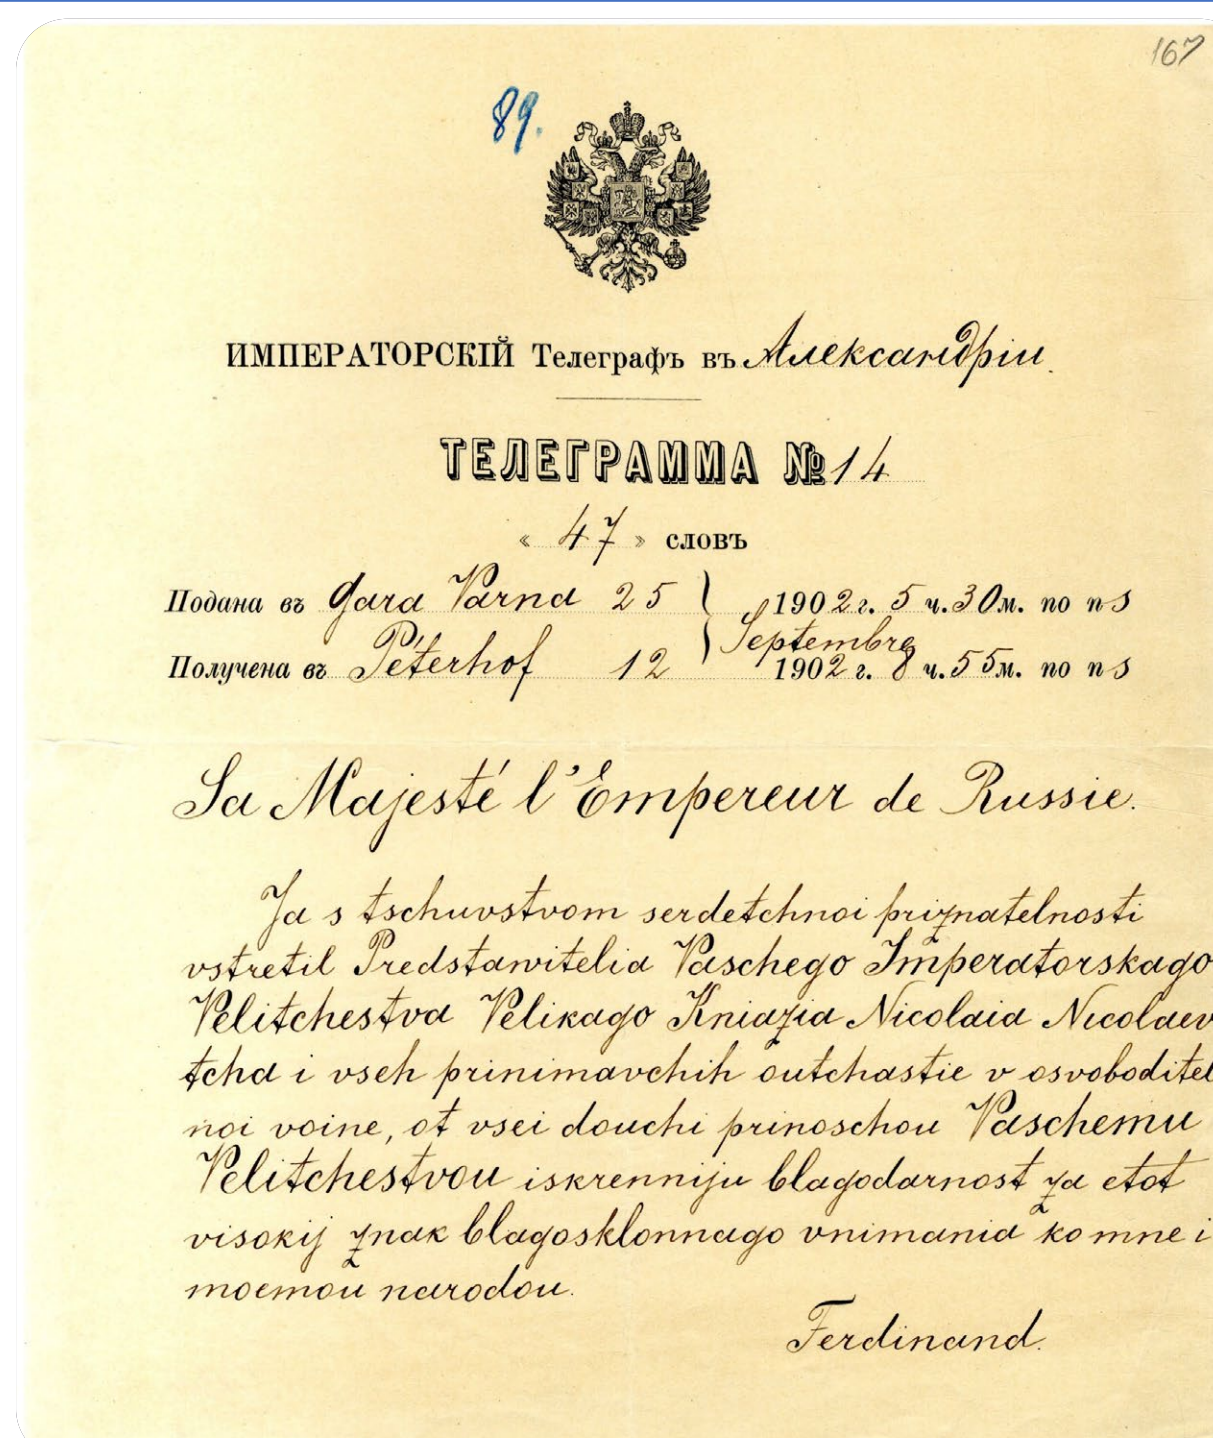 167
89.
ИМПЕРАТОРСКІЙ Телеграфъ въ Александріи.
ТЕЛЕГРАММА № 14
« 47 » словъ
Подана въ Gara Varna 25 1902 г. 5 ч. 30 м. по п s
Septembre
Получена въ Péterhof 12 1902 г. 8 ч. 55 м. по п s
Sa Majesté l'Empereur de Russie.
Ja s tschuvstvom serdetchnoi priznatelnosti
vstretil Predstavitelia Vaschego Imperatorskago
Velitchestva Velikago Kniazia Nicolaia Nicolaev
tcha i vseh prinimavchih outchastie v osvoboditel
noi voine, ot vsei douchi prinoschou Vaschemu
Velitchestvou iskrenniju blagodarnost za etot
visokij znak blagosklonnago vnimania ko mne i
moemou narodou.
Ferdinand.